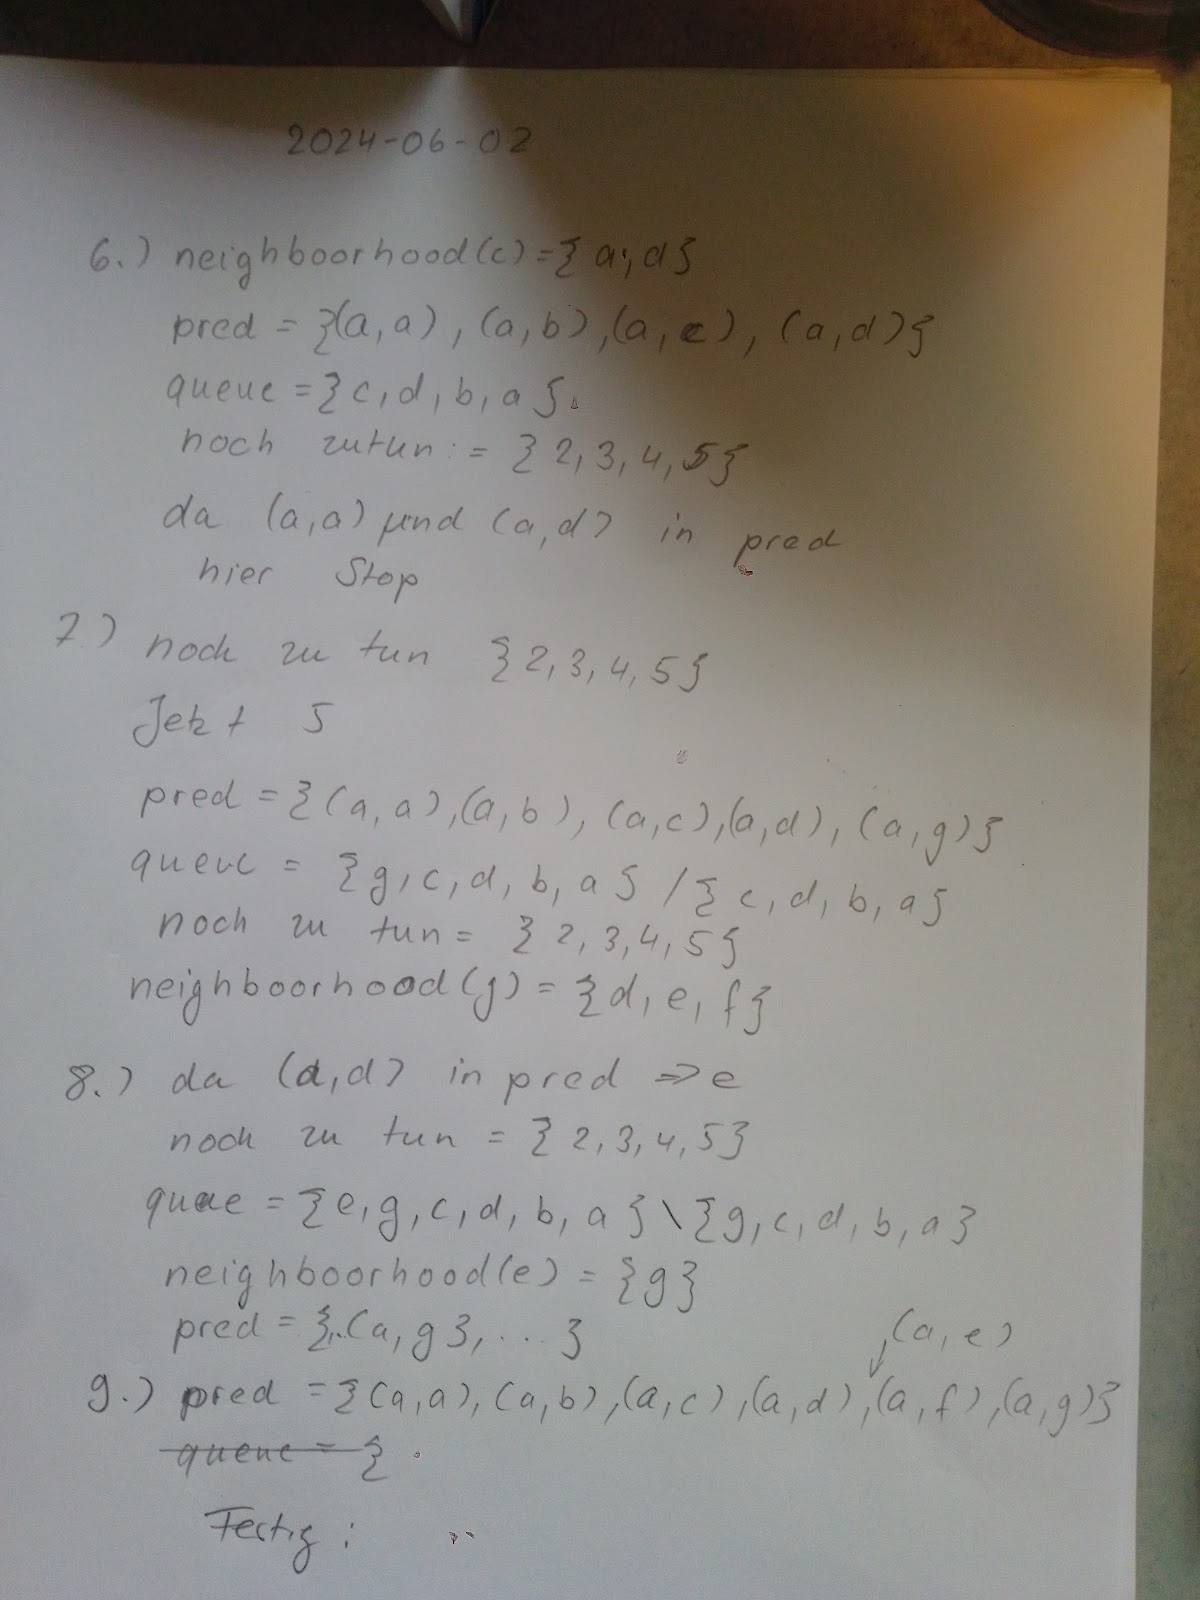 2024-06-02
6.) neighboorhood(c)={a,d}
pred = {(a,a),(a,b),(a,c),(a,d)}
queue = {c,d,b,a}
noch zutun := {2,3,4,5}
da (a,a) und (a,d) in pred
hier Stop
7.) noch zu tun {2,3,4,5}
Jetzt 5
pred = {(a,a),(a,b),(a,c),(a,d),(a,g)}
queue = {g,c,d,b,a} / {c,d,b,a}
noch zu tun = {2,3,4,5}
neighboorhood(g) = {d,e,f}
8.) da (a,d) in pred => e
noch zu tun = {2,3,4,5}
queue = {e,g,c,d,b,a} \ {g,c,d,b,a}
neighboorhood(e) = {g}
pred = {(a,g}, ...}
(a,e)
9.) pred = {(a,a),(a,b),(a,c),(a,d),(a,f),(a,g)}
queue = {
Fertig: